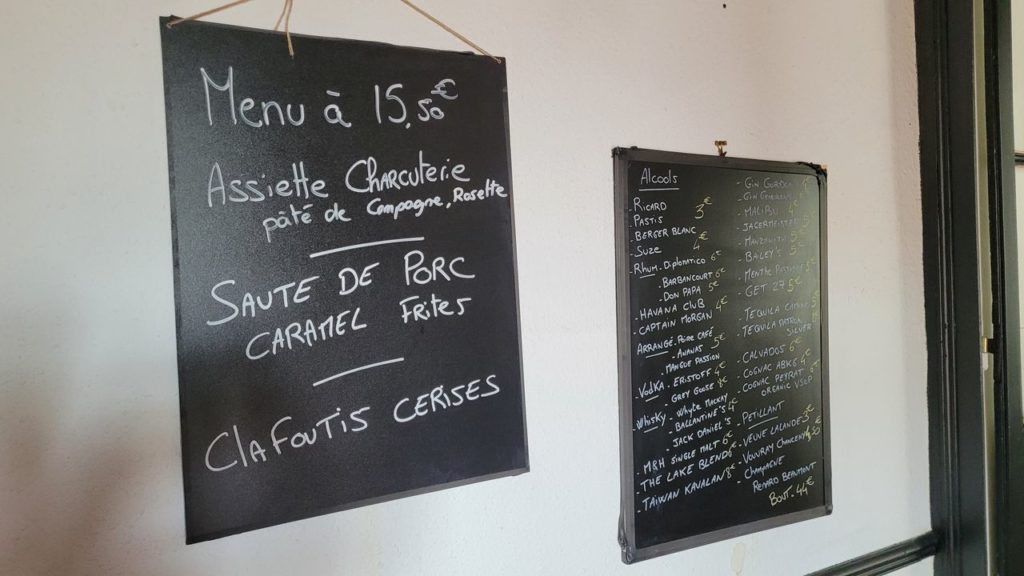 Menu à 15,50€
Assiette Charcuterie
pâté de Campagne, Rosette
SAUTE DE PORC
CARAMEL Frites
Clafoutis CERISES
Alcools
- RICARD
- PASTIS 3€
- BERGER BLANC
- SUZE 4€
- Rhum. Diplomatico 6€
- BARBANCOURT 6€
- DON PAPA 5€
- HAVANA CLUB
- CAPTAIN MORGAN 4€
- ARRANGÉ. Poire CAFÉ
- ANANAS 5€
MANGUE PASSION
- Vodka. ERISTOFF 4€
- GREY GOOSE 8€
- Whisky. Whyte Mackay
- BALLANTINE'S 4€
- JACK DANIEL'S
- M&H SINGLE MALT 6€
- THE LAKE BLEND 6€
- TAIWAN KAVALAN 8€
- GIN GORDON
- GIN
- MALIBU 4€
- JAGERMEISTER
- BAILEY'S
- MENTHE
- GET 27 5€
- TEQUILA
- TEQUILA
SILVER
- CALVADOS 6€
- COGNAC ABK6
- COGNAC PEYRAT
ORGANIC VSOP
- PETILLANT
- VEUVE LALANDE 3€
- VOUVRAY
- CHAMPAGNE
RENARD BEAUMONT
Bout. 44€